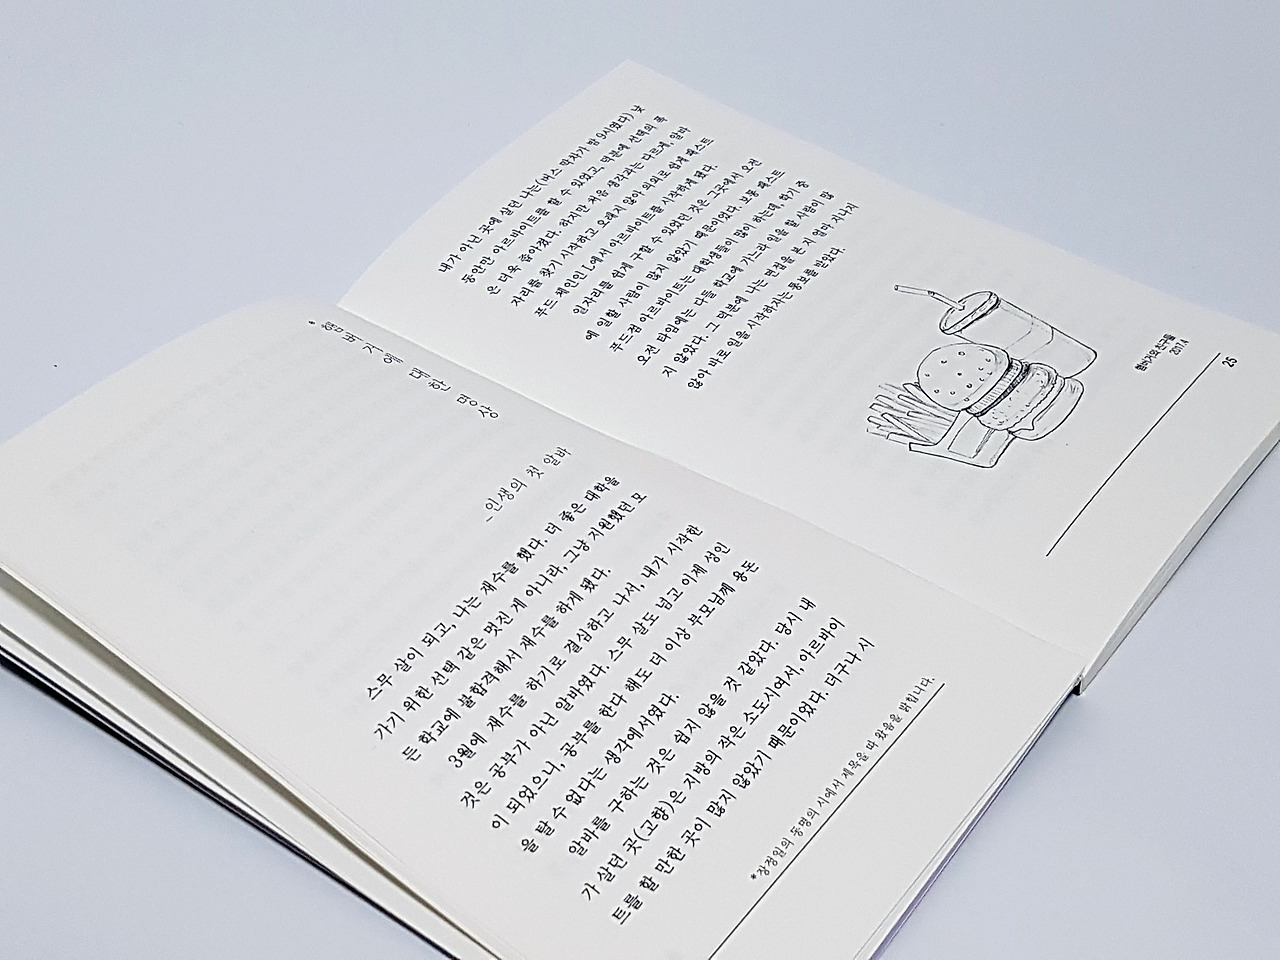 *햄버거에 대한 명상
_인생의 첫 알바
스무 살이 되고, 나는 재수를 했다. 더 좋은 대학을
가기 위한 선택 같은 멋진 게 아니라, 그냥 지원했던 모
든 학교에 불합격해서 재수를 하게 됐다.
3월에 재수를 하기로 결심하고 나서, 내가 시작한
것은 공부가 아닌 알바였다. 스무 살도 넘고 이제 성인
이 되었으니, 공부를 한다 해도 더 이상 부모님께 용돈
을 탈 수 없다는 생각에서였다.
알바를 구하는 것은 쉽지 않을 것 같았다. 당시 내
가 살던 곳(고향)은 지방의 작은 소도시여서, 아르바이
트를 할 만한 곳이 많지 않았기 때문이었다. 더구나 시
*장정일의 동명의 시에서 제목을 따 왔음을 밝힙니다.
내가 아닌 곳에 살던 나는(버스 막차가 밤 9시였다) 낮
동안만 아르바이트를 할 수 있었고, 덕분에 선택의 폭
은 더욱 좁아졌다. 하지만 처음 생각과는 다르게, 알바
자리를 찾기 시작하고 오래지 않아 의외로 쉽게 패스트
푸드 체인인 L에서 아르바이트를 시작하게 됐다.
일자리를 쉽게 구할 수 있었던 것은 그곳에서 오전
에 일할 사람이 많지 않았기 때문이었다. 보통 패스트
푸드점 아르바이트는 대학생들이 많이 하는데, 학기 중
오전 타임에는 다들 학교에 가느라 일을 할 사람이 많
지 않았다. 그 덕분에 나는 면접을 본 지 얼마 지나지
않아 바로 일을 시작하자는 통보를 받았다.
햄버거와 친구들
2017.4
25